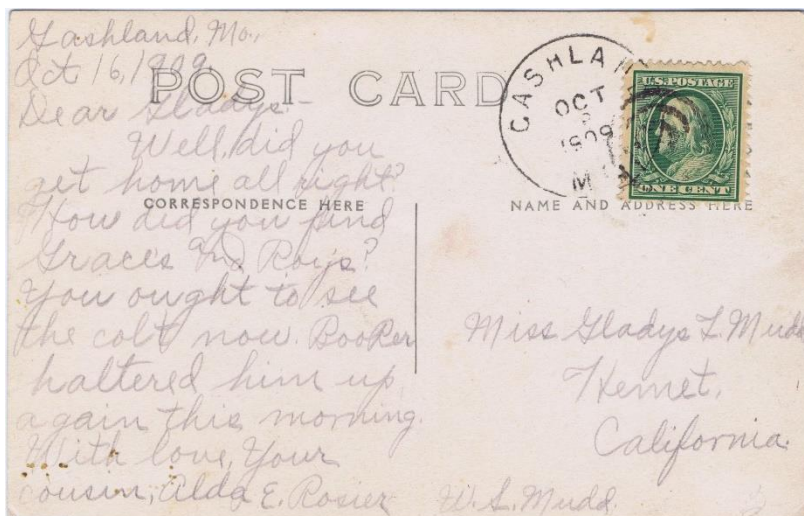 Gashland, Mo.,
Oct 16, 1909
POST CARD
Dear Gladys:-
Well, did you
get home all right?
CORRESPONDENCE HERE
How did you find
Graces and Roys?
You ought to see
the colt now. Booker
haltered him up
again this morning.
With love, Your
cousin, Alda E. Rosier
GASHLAND
OCT
1909
M
U.S. POSTAGE
ONE CENT
NAME AND ADDRESS HERE
Miss Gladys L. Mudd
Hemet,
California.
W. L. Mudd.